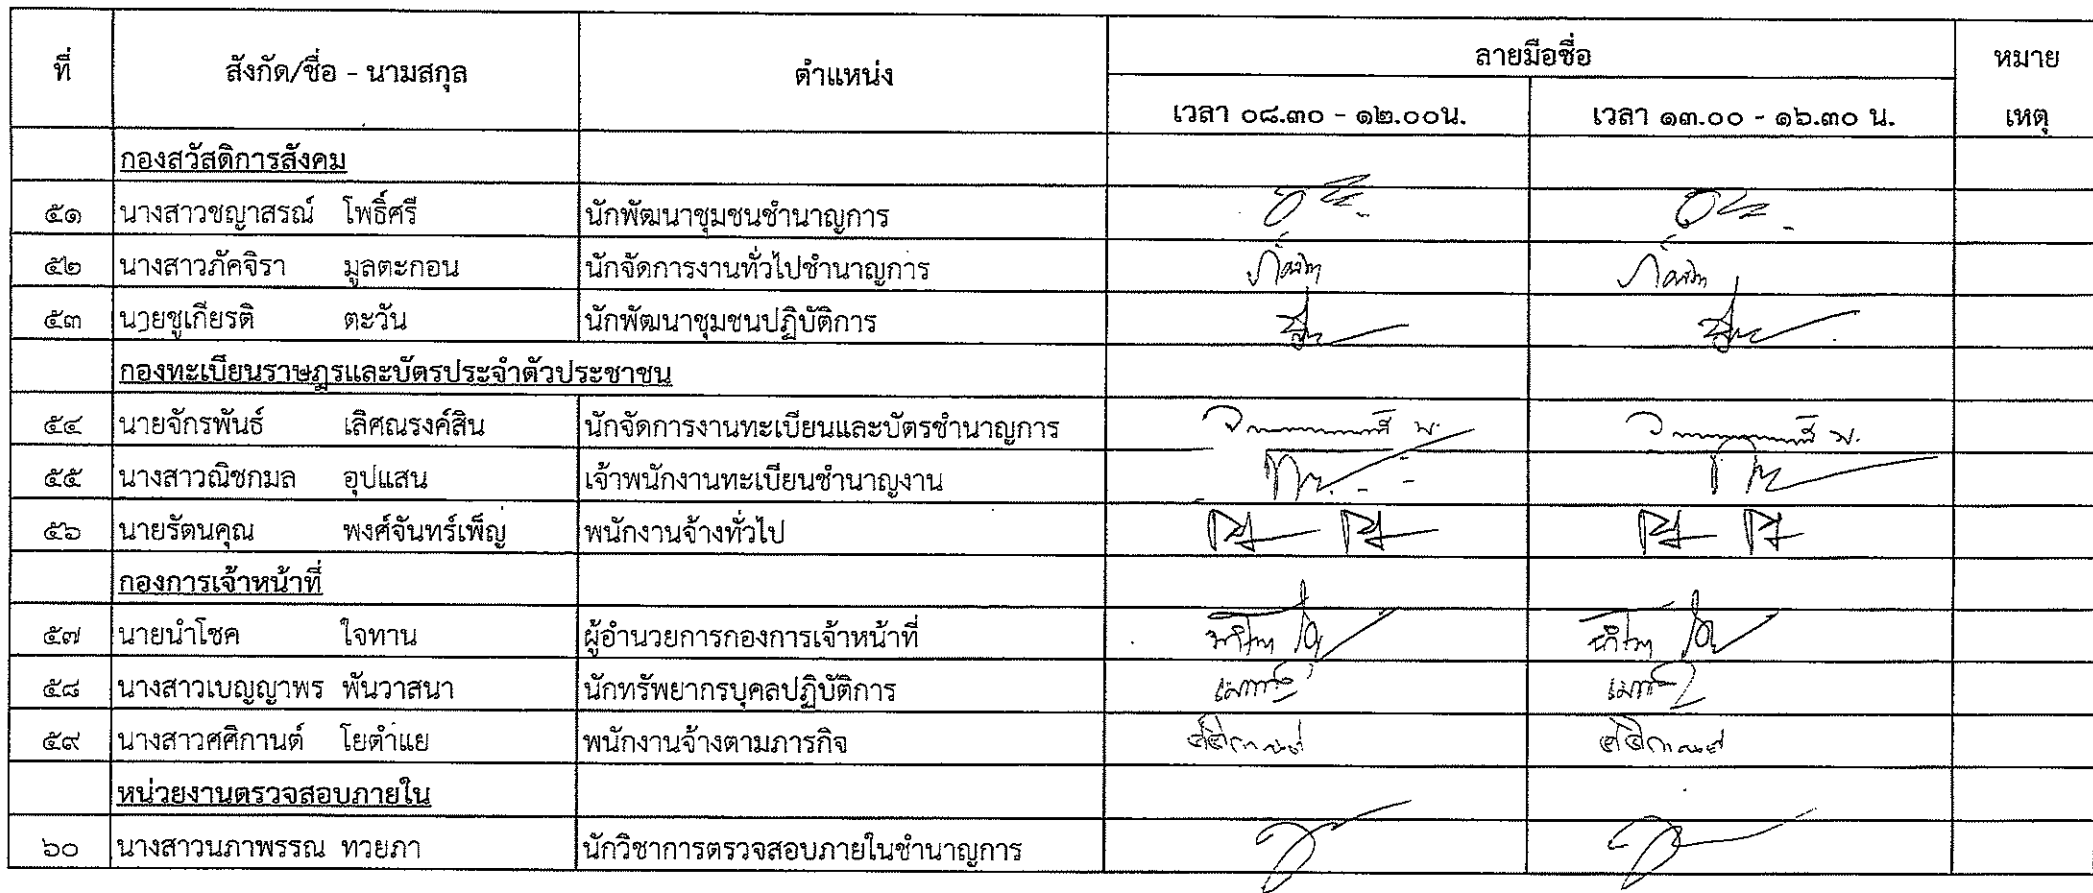 ที่ สังกัด/ชื่อ - นามสกุล ตำแหน่ง ลายมือชื่อ หมาย
เวลา ๐๘.๓๐ - ๑๒.๐๐น. เวลา ๑๓.๐๐ - ๑๖.๓๐ น. เหตุ
กองสวัสดิการสังคม
๕๑ นางสาวชญาสรณ์ โพธิ์ศรี นักพัฒนาชุมชนชำนาญการ
๕๒ นางสาวภัคจิรา มูลตะกอน นักจัดการงานทั่วไปชำนาญการ
๕๓ นายชูเกียรติ ตะวัน นักพัฒนาชุมชนปฏิบัติการ
กองทะเบียนราษฎรและบัตรประจำตัวประชาชน
๕๔ นายจักรพันธ์ เลิศณรงค์สิน นักจัดการงานทะเบียนและบัตรชำนาญการ
๕๕ นางสาวณิชกมล อุปแสน เจ้าพนักงานทะเบียนชำนาญงาน
๕๖ นายรัตนคุณ พงศ์จันทร์เพ็ญ พนักงานจ้างทั่วไป
กองการเจ้าหน้าที่
๕๗ นายนำโชค ใจทาน ผู้อำนวยการกองการเจ้าหน้าที่
๕๘ นางสาวเบญญาพร พันวาสนา นักทรัพยากรบุคลปฏิบัติการ
๕๙ นางสาวศศิกานต์ โยตำแย พนักงานจ้างตามภารกิจ ศศิกานต์ ศศิกานต์
หน่วยงานตรวจสอบภายใน
๖๐ นางสาวนภาพรรณ ทวยภา นักวิชาการตรวจสอบภายในชำนาญการ